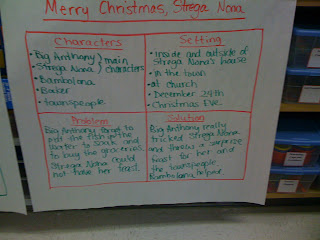 Merry Christmas, Strega Nona
Characters
• Big Anthony } main
Strega Nona } characters
• Bambolona
• Baker
• townspeople
Setting
• inside and outside of
Strega Nona's house
• in the town
• at church
• December 24th
• Christmas Eve
Problem
Big Anthony forgot to
put the fish in the
water to soak and
to buy the groceries.
Strega Nona could
not have her feast.
Solution
Big Anthony really
tricked Strega Nona
and throws a surprise
feast for her and
the townspeople
Bambolona helped.